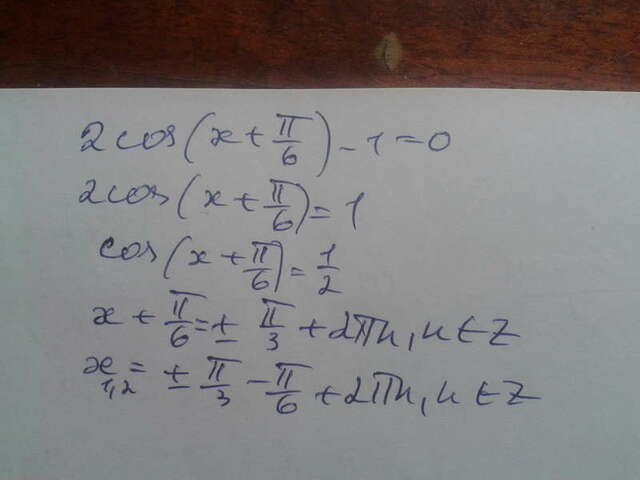 2cos(x + π/6) - 1 = 0
2cos(x + π/6) = 1
cos(x + π/6) = 1/2
x + π/6 = ± π/3 + 2πn, n ∈ Z
x1,2 = ± π/3 - π/6 + 2πn, n ∈ Z